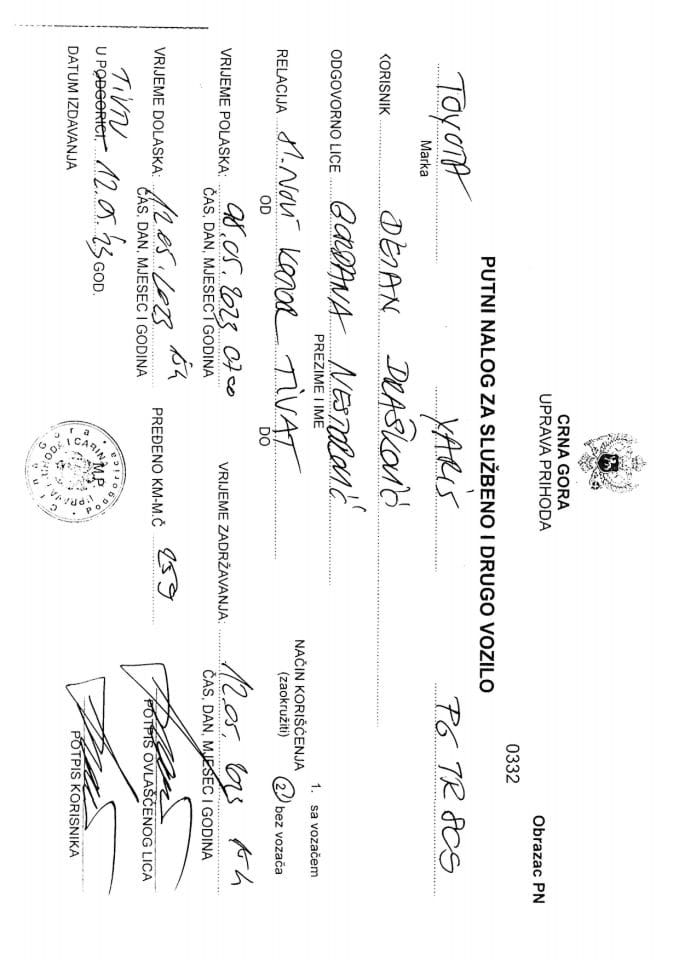 Obrazac PN
CRNA GORA
UPRAVA PRIHODA
0332
PUTNI NALOG ZA SLUŽBENO I DRUGO VOZILO
TOYOTA YARIS PG TR 805
Marka
KORISNIK DEJAN DRAŠKOVIĆ
ODGOVORNO LICE NESTOROVIĆ
PREZIME I IME
RELACIJA H. NOVI KOTOR TIVAT
OD DO
NAČIN KORIŠĆENJA
(zaokružiti)
1. sa vozačem
2 bez vozača
VRIJEME POLASKA: 08.05.2023 07 00
ČAS, DAN, MJESEC I GODINA
VRIJEME ZADRŽAVANJA: 12.05.2023
ČAS, DAN, MJESEC I GODINA
VRIJEME DOLASKA: 12.05.2023
ČAS, DAN, MJESEC I GODINA
PREĐENO KM-M.Č 959
POTPIS OVLAŠĆENOG LICA
TIVTU
U PODGORICI, 12.05.'23 GOD.
DATUM IZDAVANJA
M.P.
POTPIS KORISNIKA